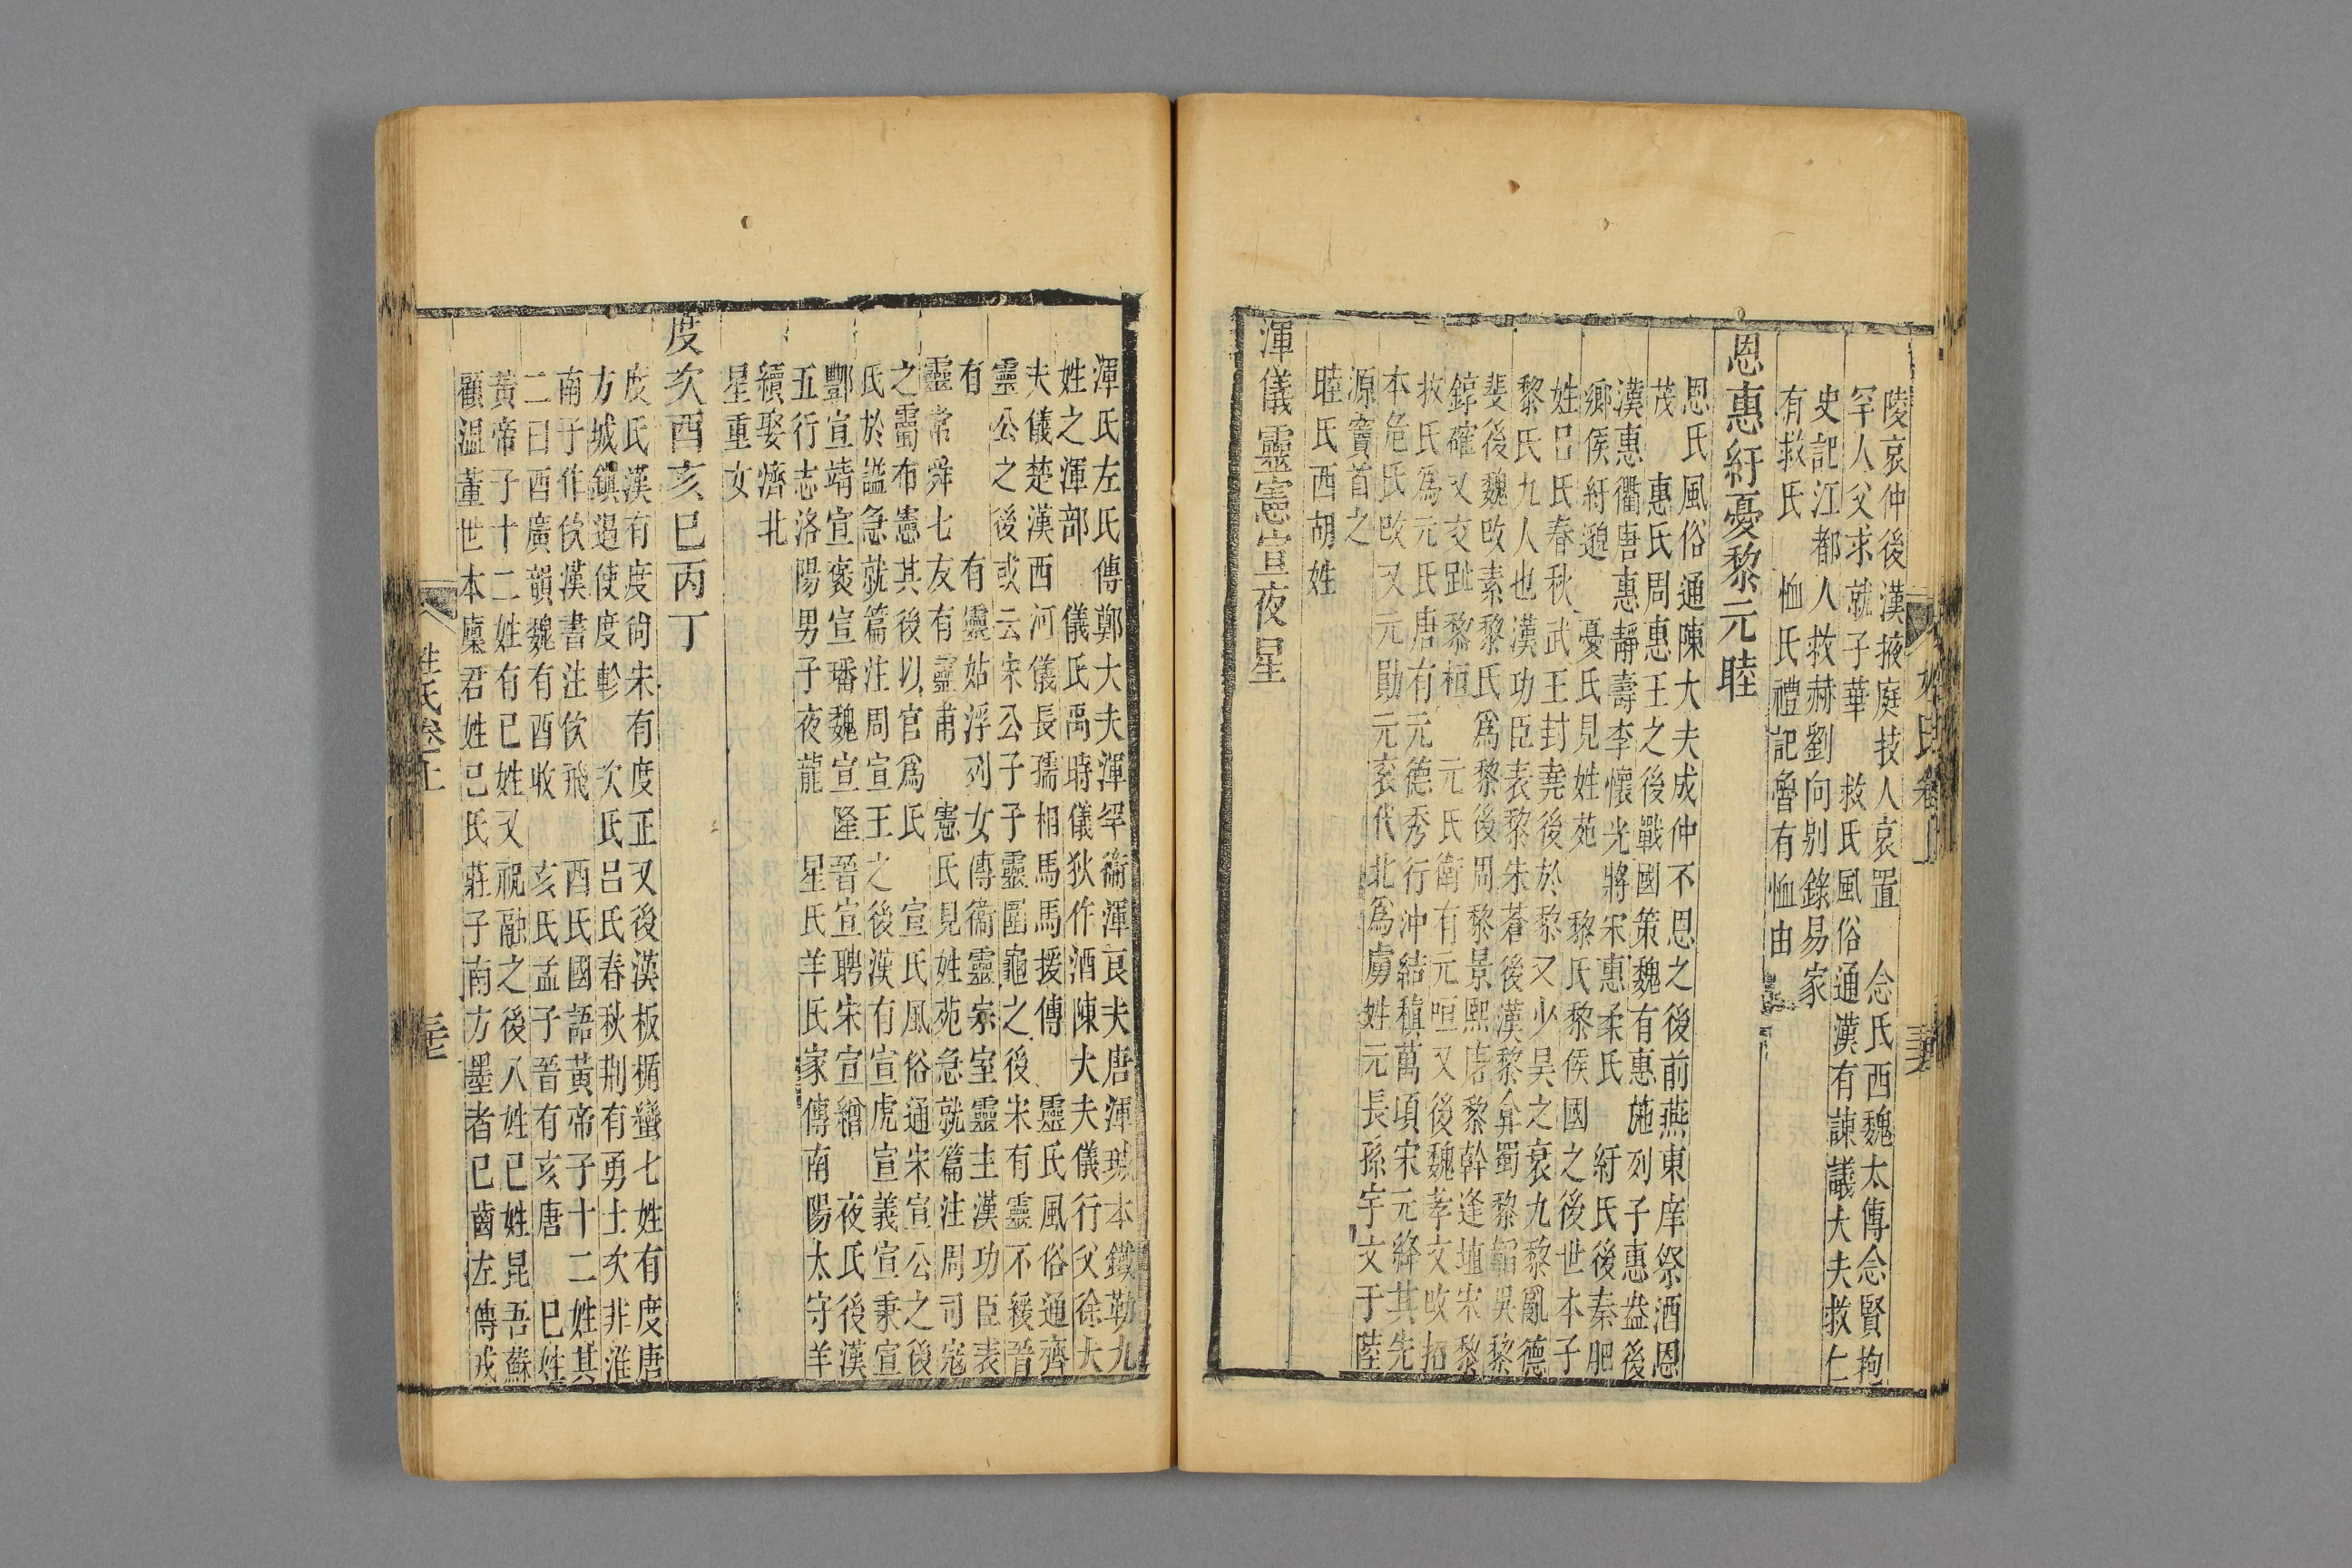 陵哀仲後漢掖庭技人哀置　念氏西魏太傅念賢抱
罕人父求就子華　救氏風俗通漢有諫議大夫救仁
史記江都人救赫劉向别錄易家
有救氏　恤氏禮記魯有恤由
恩惠紆憂黎元睦
恩氏風俗通陳大夫成仲不恩之後前燕東庠祭酒恩
茂　惠氏周惠王之後戰國策魏有惠施列子惠盎後
漢惠衢唐惠靜壽李懷光將宋惠柔氏　紆氏後秦肥
鄉侯紆邈　憂氏見姓苑　黎氏黎侯國之後世本子
姓吕氏春秋武王封堯後於黎又少昊之衰九黎亂德
黎氏九人也漢功臣表黎朱蒼後漢黎弇蜀黎韜吳黎
斐後魏改素黎氏爲黎後周黎景熙唐黎幹逢埴宋黎
錞確又交趾黎桓　元氏衛有元咺又後魏孝文改拓
拔氏爲元氏唐有元德秀行沖結稹萬頃宋元絳其先
本危氏改又元勛元衮代北爲虜姓元長孫宇文于陸
源竇首之
睦氏西胡姓
渾儀靈憲宣夜星
渾氏左氏傳鄭大夫渾罕衛渾良夫唐渾瑊本鐵勒九
姓之渾部　儀氏禹時儀狄作酒陳大夫儀行父徐大
夫儀楚漢西河儀長孺相馬馬援傳　靈氏風俗通齊
靈公之後或云宋公子子靈圍龜之後宋有靈不緩晉
有　有靈姑浮列女傳衞靈宗室靈主漢功臣表
靈常舜七友有靈甫　憲氏見姓苑急就篇注周司寇
之屬布憲其後以官爲氏　宣氏風俗通宋宣公之後
氏於謚急就篇注周宣王之後漢有宣虎宣義宣秉宣
酆宣靖宣褒宣璠魏宣隆晉宣聘宋宣繒　夜氏後漢
五行志洛陽男子夜龍　星氏羊氏家傳南陽太守羊
續娶濟北
星重女
度次酉亥巳丙丁
度氏漢有度尚宋有度正又後漢板楯蠻七姓有度唐
方城鎮遏使度軫　次氏吕氏春秋荆有勇士次非淮
南子作佽漢書注佽飛　酉氏國語黄帝子十二姓其
二曰酉廣韻魏有酉收　亥氏孟子晉有亥唐　巳姓
黃帝子十二姓有巳姓又祝融之後八姓巳姓昆吾蘇
顧温董世本廩君姓巳氏莊子南方墨者巳齒左傳戎
姓氏卷上